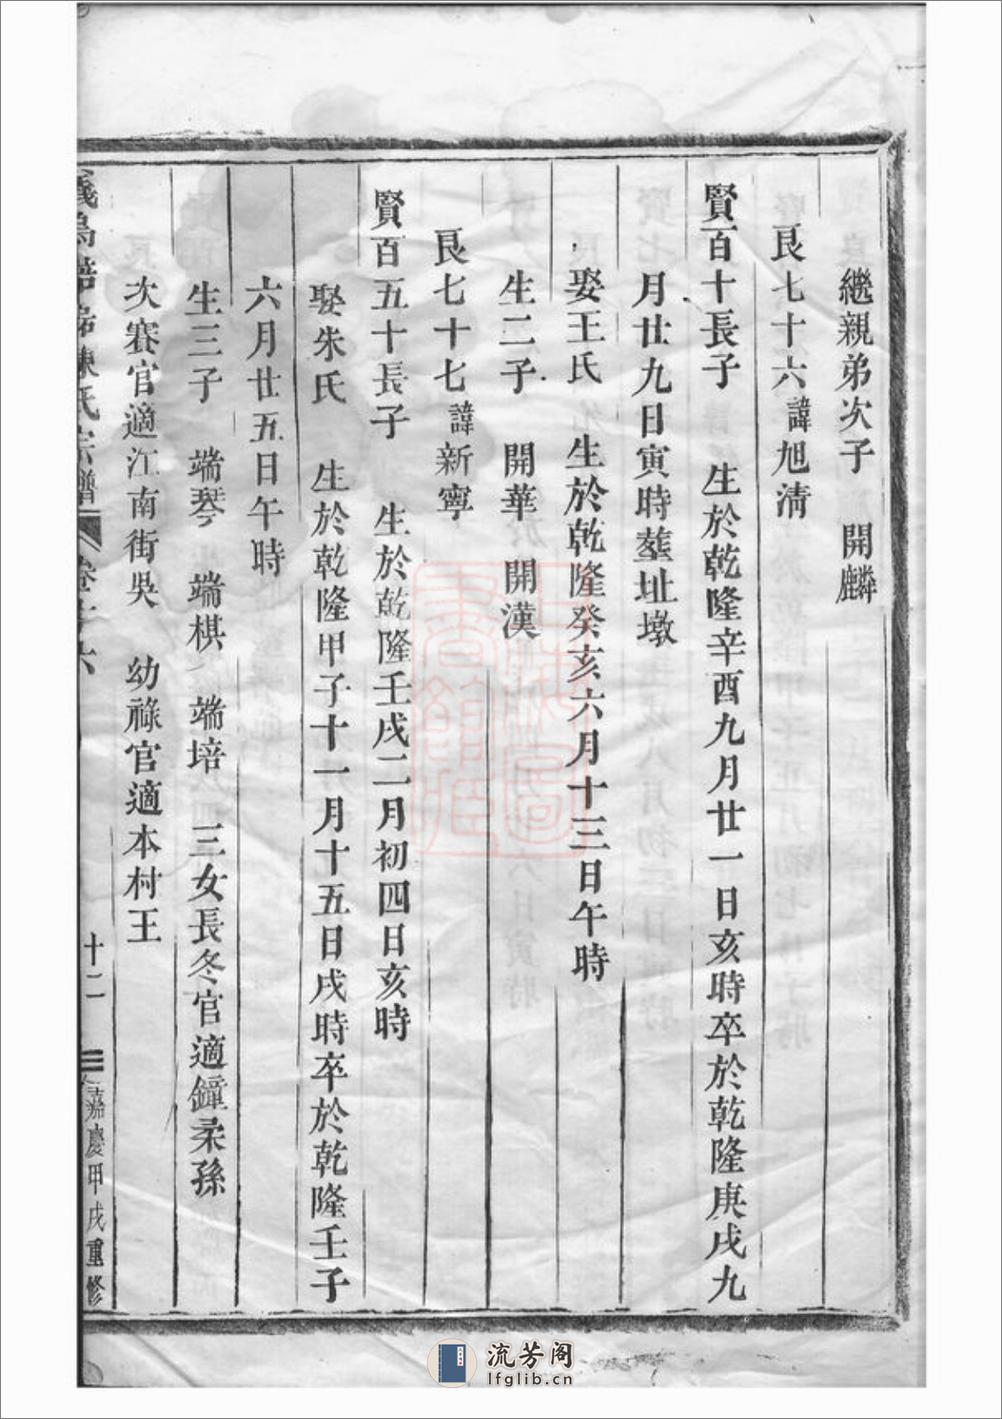 繼親弟次子　開麟
良七十六諱旭清
賢百十長子　生於乾隆辛酉九月廿一日亥時卒於乾隆庚戌九
月廿九日寅時塟址墩
娶王氏　生於乾隆癸亥六月十三日午時
生二子　開華　開漢
良七十七諱新寧
賢百五十長子　生於乾隆壬戌二月初四日亥時
娶朱氏　生於乾隆甲子十一月十五日戌時卒於乾隆壬子
六月廿五日午時
生三子　端琴　端棋　端培　三女長冬官適鐘柔孫
次賽官適江南街吳　幼祿官適本村王
義烏陳氏宗譜　卷十六　十二　嘉慶甲戌重修
流芳阁
lfglib.cn